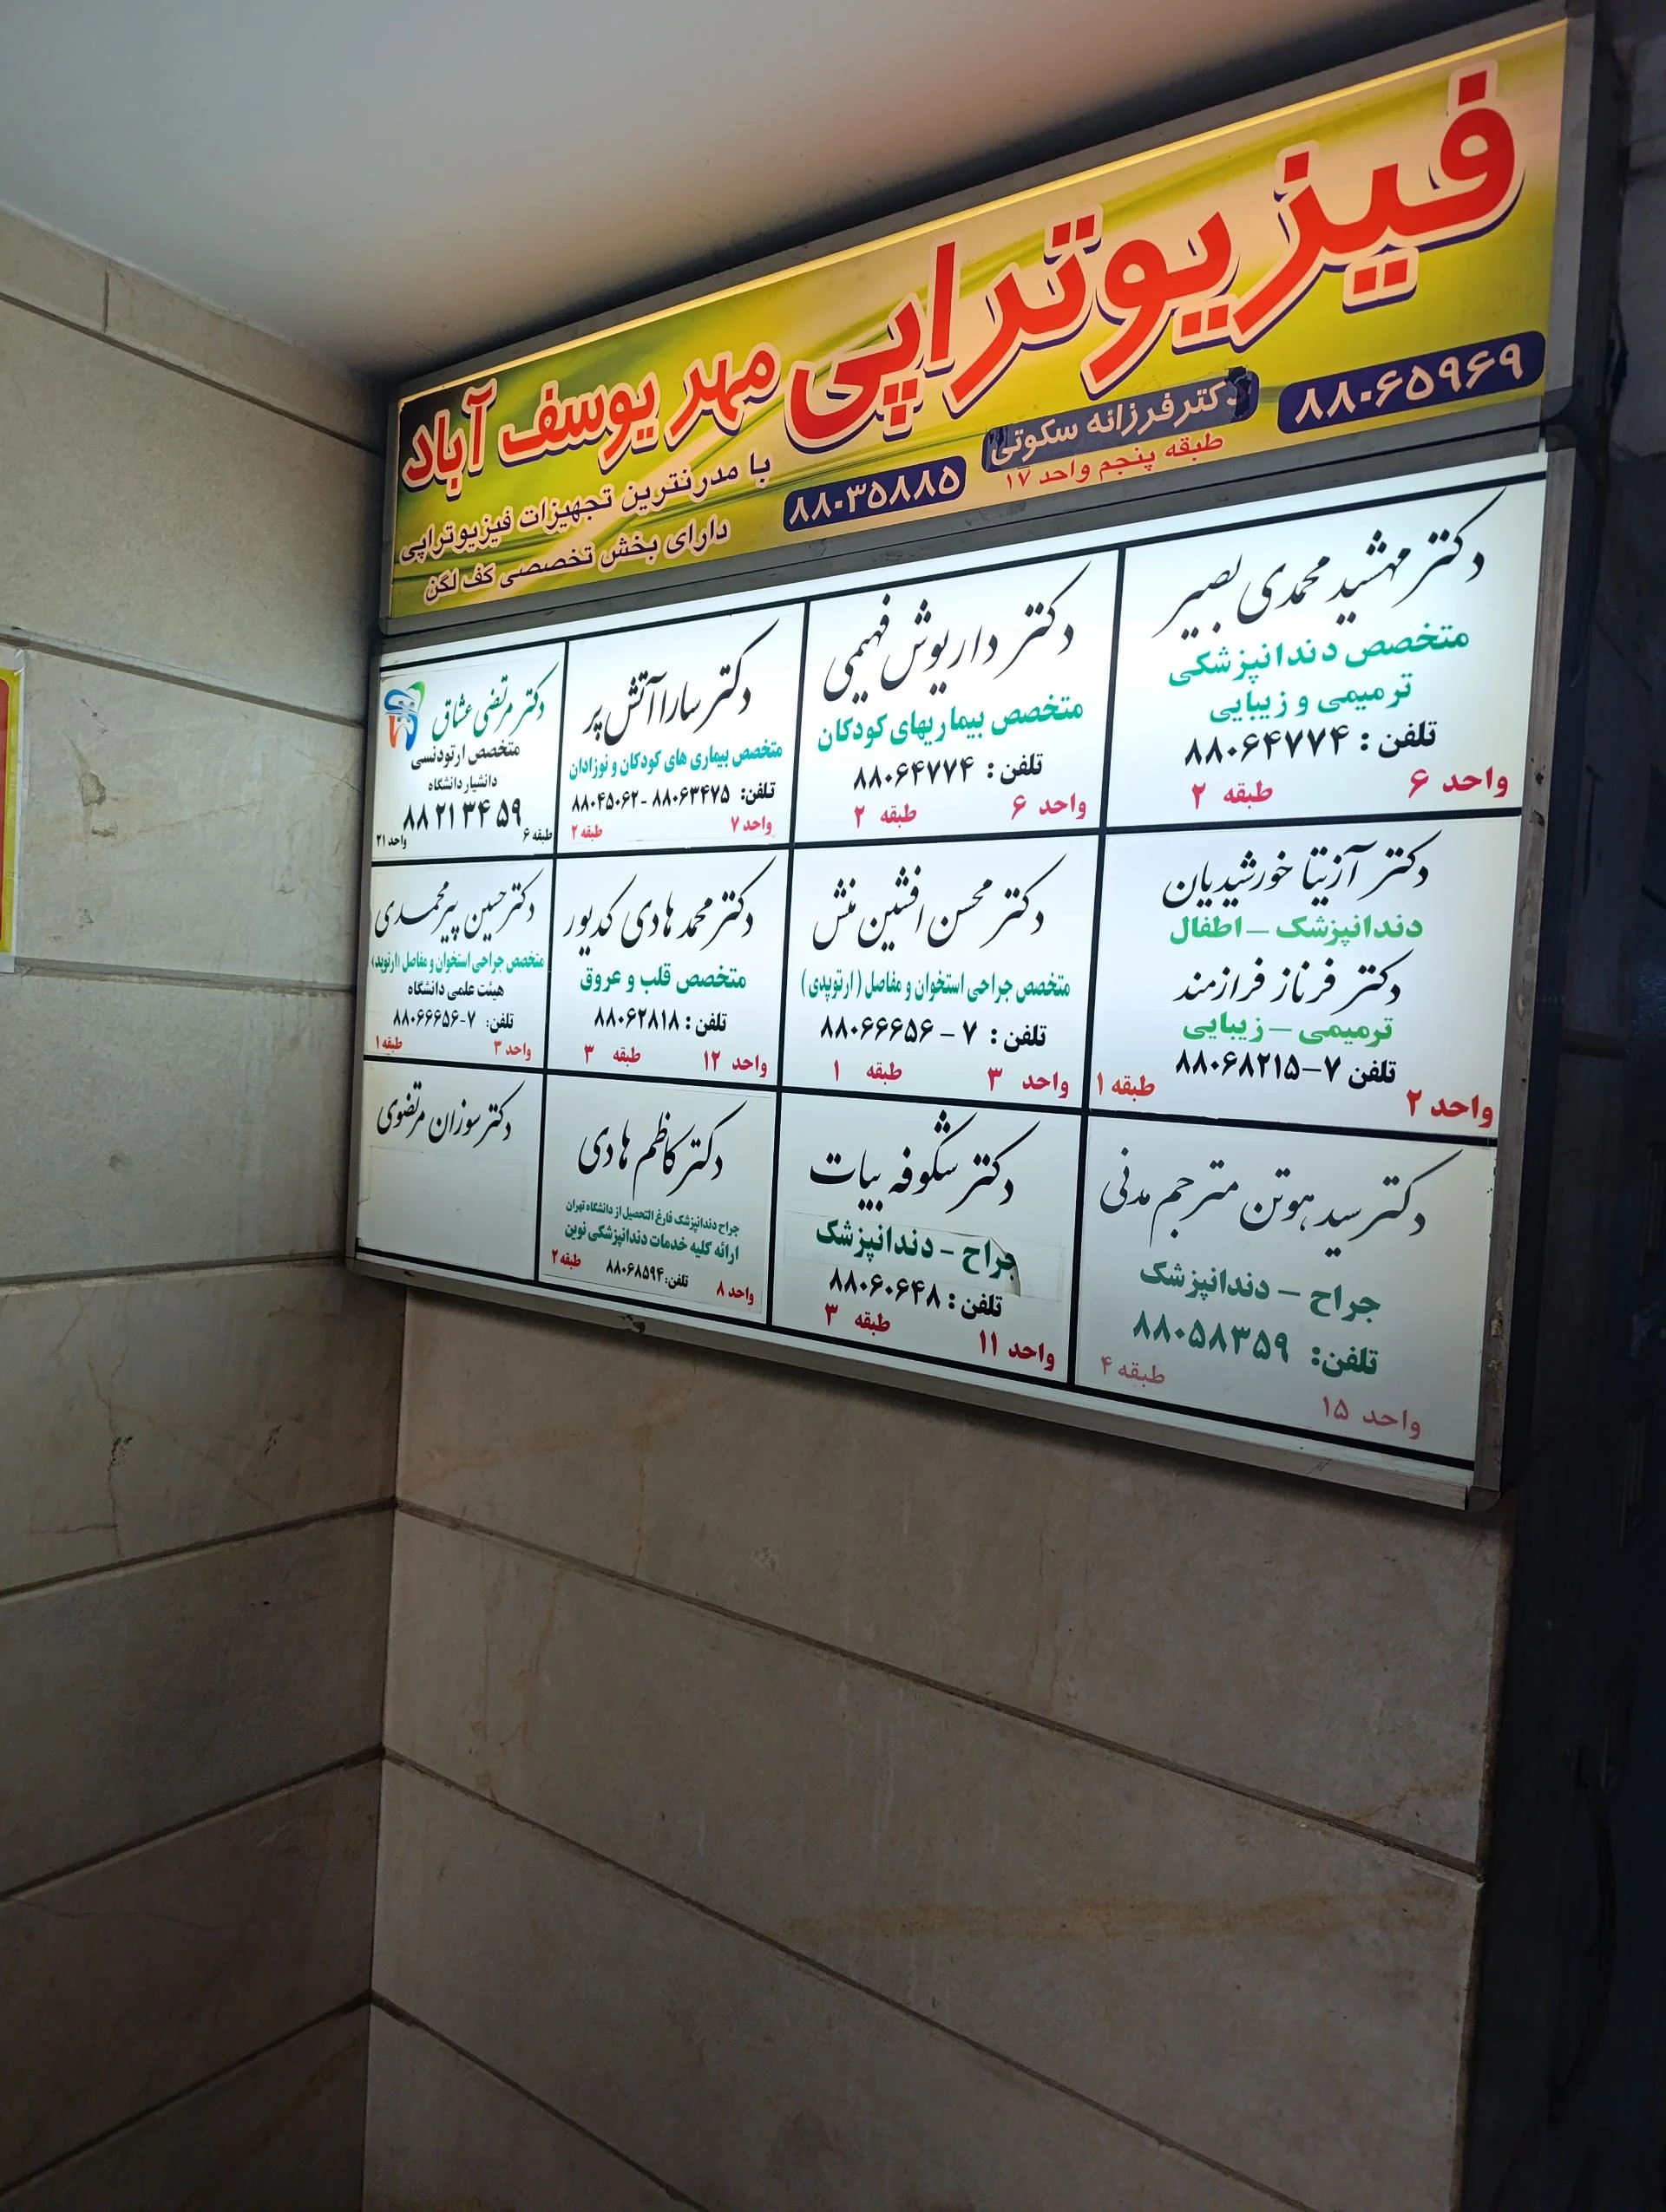 فیزیوتراپی مهر یوسف آباد
۸۸۰۶۵۹۶۹
دکتر فرزانه سکوتی
طبقه پنجم واحد ۱۷
۸۸۰۳۵۸۸۵
با مدرنترین تجهیزات فیزیوتراپی
دارای بخش تخصصی کف لگن
دکتر مهشید محمدی بصیر
متخصص دندانپزشکی
ترمیمی و زیبایی
تلفن : ۸۸۰۶۴۷۷۴
واحد ۶ طبقه ۲
دکتر داریوش فهیمی
متخصص بیماریهای کودکان
تلفن : ۸۸۰۶۴۷۷۴
واحد ۶ طبقه ۲
دکتر سارا آتش پر
متخصص بیماری های کودکان و نوزادان
تلفن: ۸۸۰۶۳۴۷۵ - ۸۸۰۴۵۰۶۲
واحد ۷ طبقه ۲
دکتر مرتضی عشاق
متخصص ارتودنسی
دانشیار دانشگاه
۸۸۲۱۳۴۵۹
طبقه ۶ واحد ۲۱
دکتر آزیتا خورشیدیان
دندانپزشک – اطفال
دکتر فرناز فرازمند
ترمیمی – زیبایی
تلفن ۷–۸۸۰۶۸۲۱۵
واحد ۲ طبقه ۱
دکتر محسن افشین منش
متخصص جراحی استخوان و مفاصل ( ارتوپدی )
تلفن : ۷ - ۸۸۰۶۶۶۵۶
واحد ۳ طبقه ۱
دکتر محمد هادی کدیور
متخصص قلب و عروق
تلفن : ۸۸۰۶۲۸۱۸
واحد ۱۲ طبقه ۳
دکتر حسین پیرمحمدی
متخصص جراحی استخوان و مفاصل (ارتوپد)
هیئت علمی دانشگاه
تلفن: ۷-۸۸۰۶۶۶۵۶
واحد ۳ طبقه ۱
دکتر سید هوتن مترجم مدنی
جراح – دندانپزشک
تلفن: ۸۸۰۵۸۳۵۹
طبقه ۴
واحد ۱۵
دکتر شکوفه بیات
جراح – دندانپزشک
تلفن : ۸۸۰۶۰۶۴۸
واحد ۱۱ طبقه ۳
دکتر کاظم هادی
جراح دندانپزشک فارغ التحصیل از دانشگاه تهران
ارائه کلیه خدمات دندانپزشکی نوین
تلفن: ۸۸۰۶۸۵۹۴
واحد ۸ طبقه ۲
دکتر سوزان مرتضوی